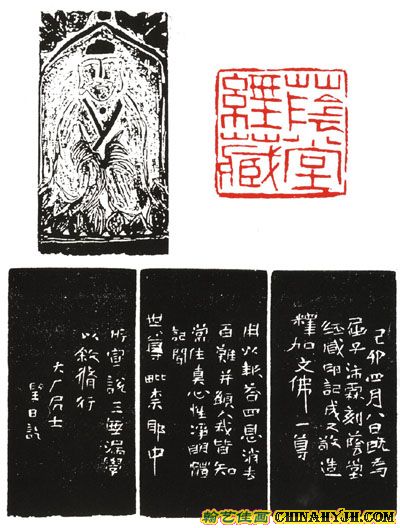 蔭堂
經藏
己卯四月八日既為
屈子沛霖刻蔭堂
經藏印記成又敬造
釋加文佛一尊
用以報答四恩消去
百難并願人我皆知
常住真心性淨明體
記聞
世尊毗柰耶中
所宣說三無漏學
以敘脩行
大厂居士
日記
翰艺佳画 CHINAHYJH.COM